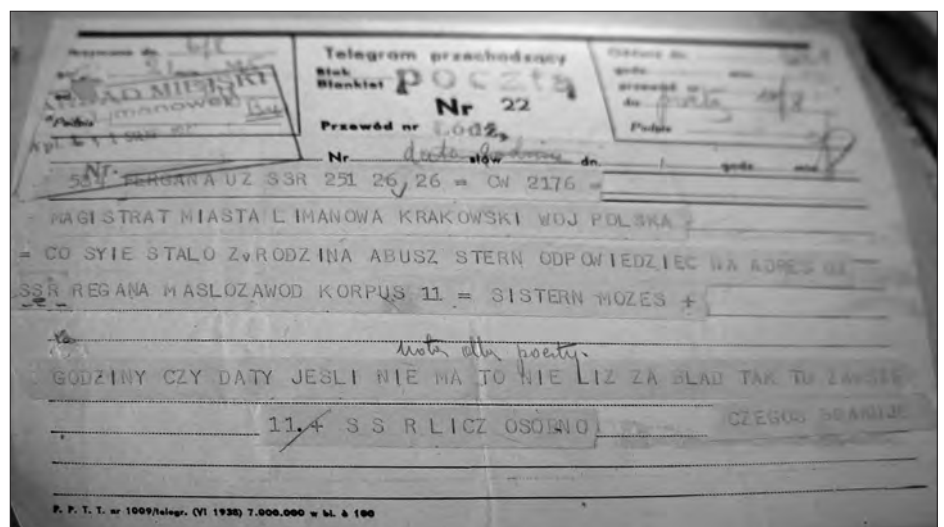 6/8
Telegram przechodzący
Blok
Blankiet
poczta
Nr 22
Przewód nr ŁÓDŹ,
URZĄD MIEJSKI
Limanowej
Podpis
godz.
przewód nr
do poczta
Podpis
Nr. słów dn. / godz. min.
534 FERGANA UZ SSR 251 26, 26 = CN 2176 =
MAGISTRAT MIASTA LIMANOWA KRAKOWSKI WOJ POLSKA =
= CO SYIE STALO ZvRODZINA ABUSZ STERN ODPOWIEDZIEC NA ADRES UZ
SSR REGANA MASLOZAWOD KORPUS 11 = SISTERN MOZES +
nota dla poczty.
GODZINY CZY DATY JESLI NIE MA TO NIE LIZ ZA BLAD TAK TU ZAWSZE
CZEGOS BRAKUJE
11.+ S S R LICZ OSOBNO
P. P. T. T. nr 1009/telegr. (VI 1938) 7.000.000 w bl. à 100